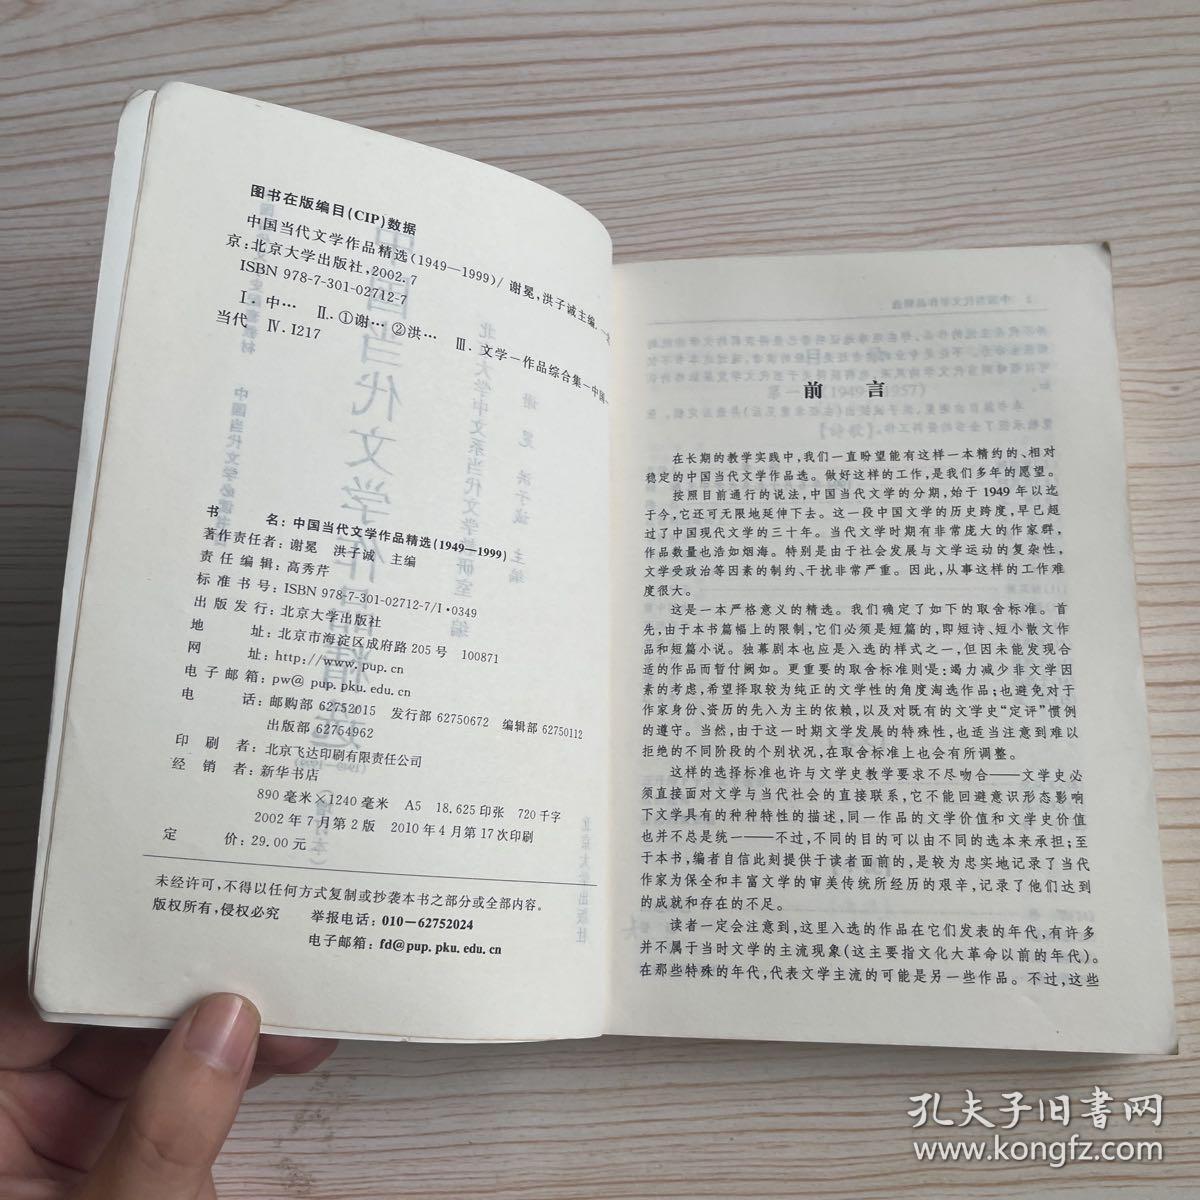 图书在版编目(CIP)数据
中国当代文学作品精选(1949—1999)/谢冕,洪子诚主编.—北
京:北京大学出版社,2002.7
ISBN 978-7-301-02712-7
Ⅰ.中… Ⅱ.①谢…②洪… Ⅲ.文学－作品综合集－中国－
当代 Ⅳ.I217
书名:中国当代文学作品精选(1949—1999)
著作责任者:谢冕 洪子诚 主编
责任编辑:高秀芹
标准书号:ISBN 978-7-301-02712-7/I·0349
出版发行:北京大学出版社
地址:北京市海淀区成府路205号 100871
网址:http://www.pup.cn
电子邮箱:pw@pup.pku.edu.cn
电话:邮购部 62752015 发行部 62750672 编辑部 62750112
出版部 62754962
印刷者:北京飞达印刷有限责任公司
经销者:新华书店
890毫米×1240毫米 A5 18.625印张 720千字
2002年7月第2版 2010年4月第17次印刷
定价:29.00元
未经许可,不得以任何方式复制或抄袭本书之部分或全部内容。
版权所有,侵权必究 举报电话:010—62752024
电子邮箱:fd@pup.pku.edu.cn
前言
在长期的教学实践中,我们一直盼望能有这样一本精约的、相对
稳定的中国当代文学作品选。做好这样的工作,是我们多年的愿望。
按照目前通行的说法,中国当代文学的分期,始于1949年以迄
于今,它还可无限地延伸下去。这一段中国文学的历史跨度,早已超
过了中国现代文学的三十年。当代文学时期有非常庞大的作家群,
作品数量也浩如烟海。特别是由于社会发展与文学运动的复杂性,
文学受政治等因素的制约、干扰非常严重。因此,从事这样的工作难
度很大。
这是一本严格意义的精选。我们确定了如下的取舍标准。首
先,由于本书篇幅上的限制,它们必须是短篇的,即短诗、短小散文作
品和短篇小说。独幕剧本也应是入选的样式之一,但因未能发现合
适的作品而暂付阙如。更重要的取舍准则是:竭力减少非文学因
素的考虑,希望择取较为纯正的文学性的角度淘选作品;也避免对于
作家身份、资历的先入为主的依赖,以及对既有的文学史“定评”惯例
的遵守。当然,由于这一时期文学发展的特殊性,也适当注意到难以
拒绝的不同阶段的个别状况,在取舍标准上也会有所调整。
这样的选择标准也许与文学史教学要求不尽吻合——文学史必
须直接面对文学与当代社会的直接联系,它不能回避意识形态影响
下文学具有的种种特性的描述,同一作品的文学价值和文学史价值
也并不总是统一——不过,不同的目的可以由不同的选本来承担;至
于本书,编者自信此刻提供于读者面前的,是较为忠实地记录了当代
作家为保全和丰富文学的审美传统所经历的艰辛,记录了他们达到
的成就和存在的不足。
读者一定会注意到,这里入选的作品在它们发表的年代,有许多
并不属于当时文学的主流现象(这主要指文化大革命以前的年代)。
在那些特殊的年代,代表文学主流的可能是另一些作品。不过,这些
孔夫子旧书网
www.kongfz.com